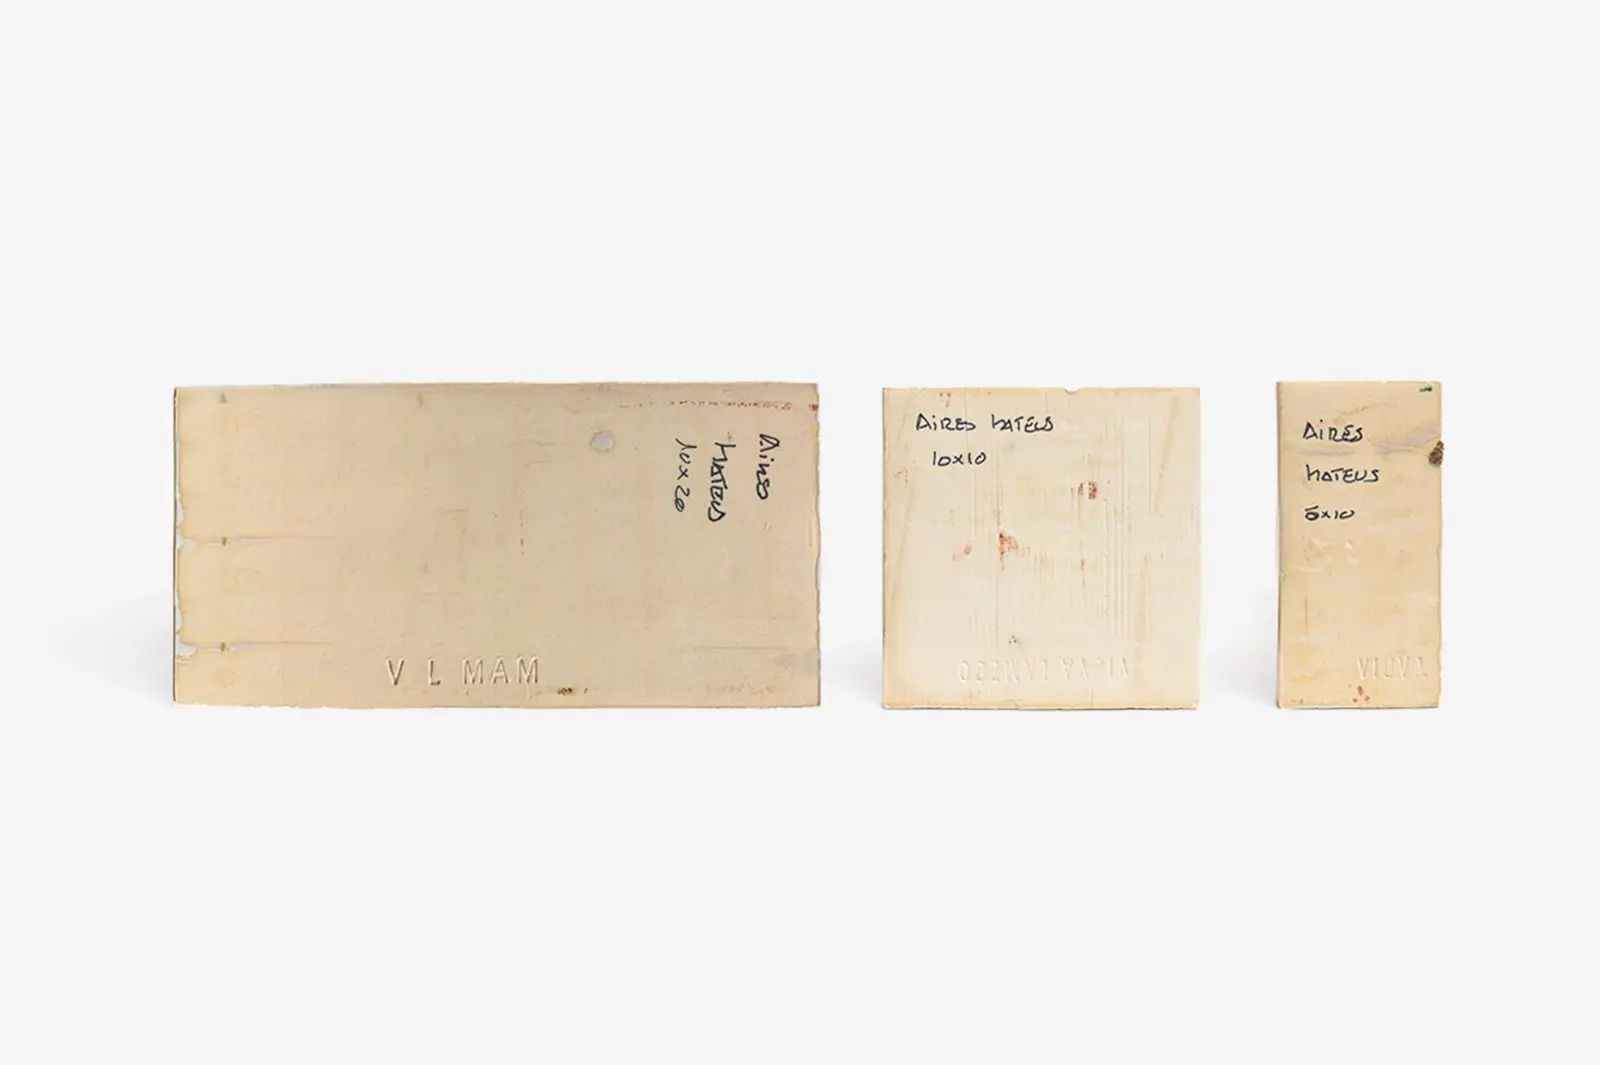 Aires
Mateus
10x20
V L MAM
AIRES MATEUS
10x10
VIUVA LAMEGO
AIRES
MATEUS
5x10
VIUVA